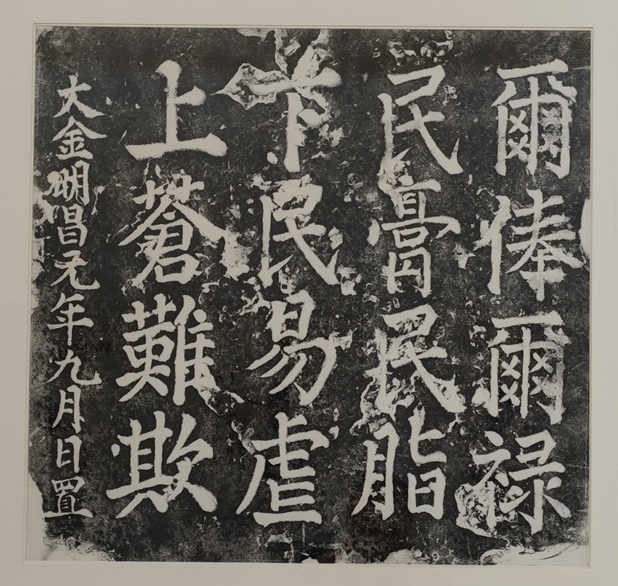 爾俸爾禄
民膏民脂
下民易虐
上蒼難欺
大金明昌元年九月日置